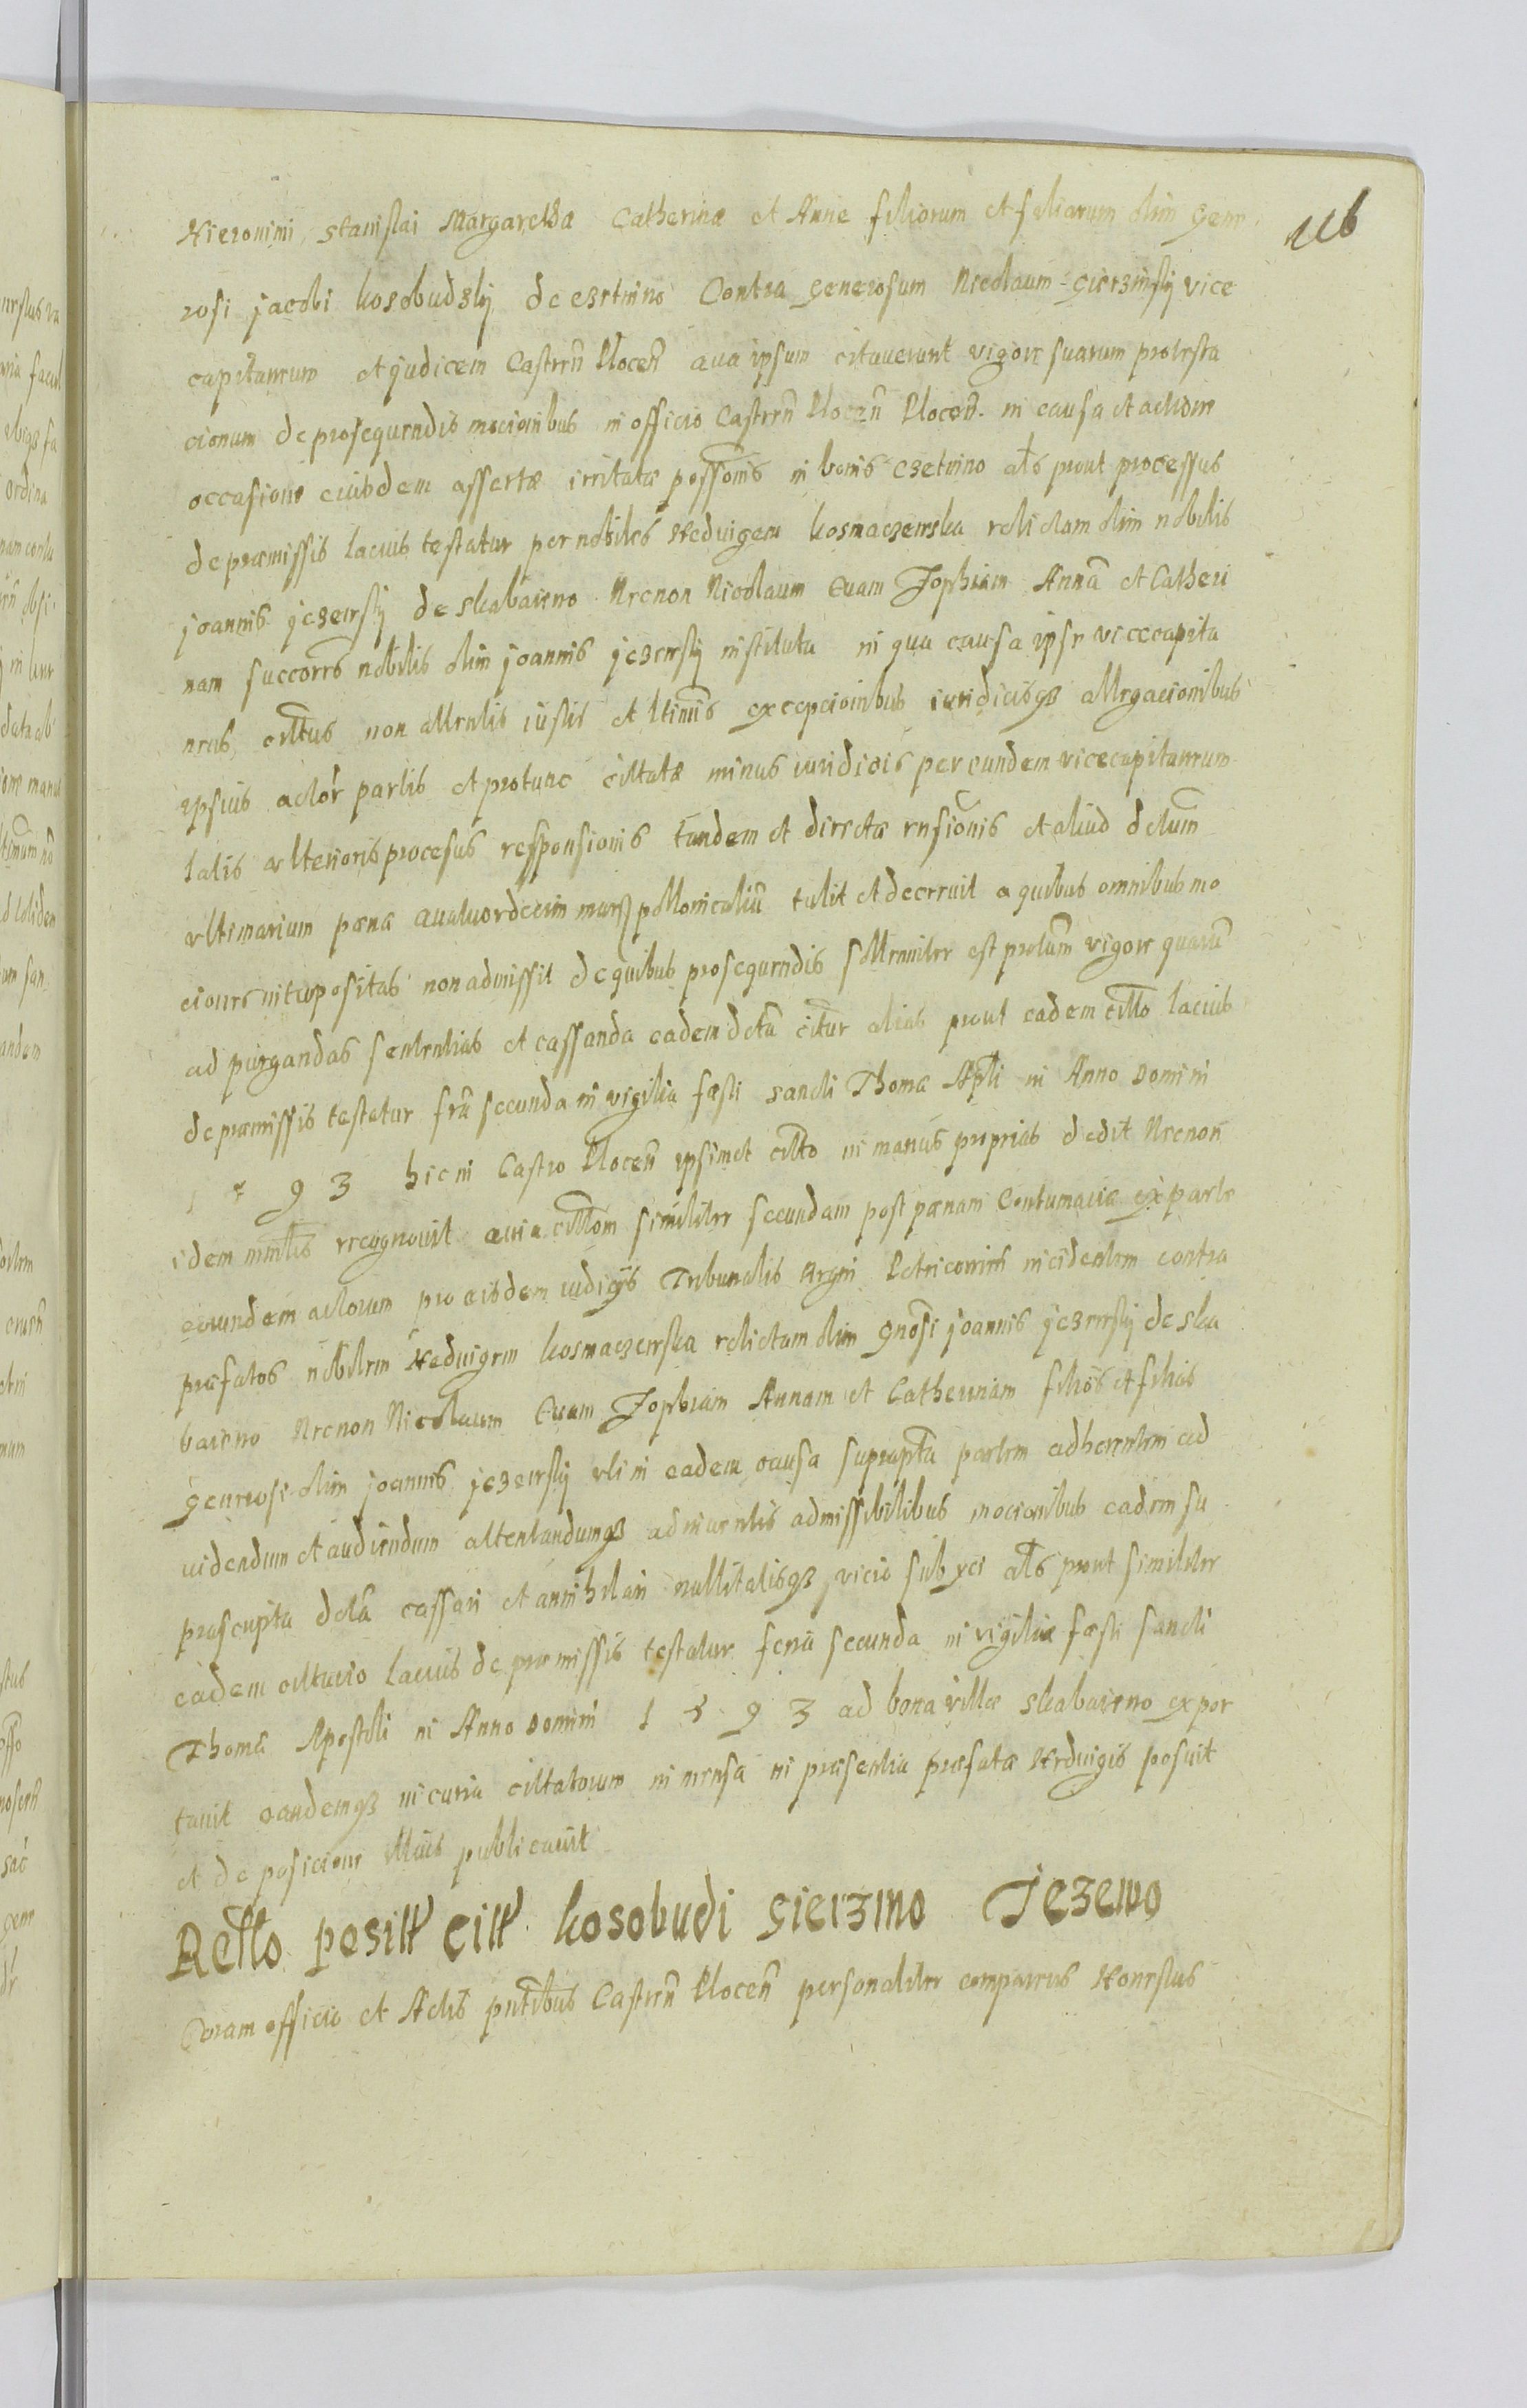 116
Hieronimi Stanislai Margarethæ Catherinæ et Anne filiorum et filiarum olim gene
rosi jacobi kosobudzkÿ de czetnino Contra generosum Nicolaum gierzinskÿ vice
capitaneum et judicem Castren̄ Plocen̄ qua ipsum citauerunt vigore suarum protesta
cionum de prosequendis mocionibus in officio Castren̄ Plocen̄ Plocen̄. in causa et actione
occasione eiusdem assertæ irritatæ possionis in bonis czetnino als prout processus
de præmissis lacius testatur per nobiles Heduigem kosmaczewska relictam olim nobilis
joannis jezewskÿ de skabaiewo Necnon Nicolaum Euam Zophiam Annā et Catheri
nam succorēs nobilis olim joannis jezewskÿ instituta in qua causa ipse vicecapita
neus citus non attentis iustis et ltimis excepcionibus iuridicisqȝ allegacionibus
ipsius actoreæ partis et protunc citatæ minus iuridicis per eundem vicecapitaneum
talis vlterioris procesus responsionis tandem et directæ rnsionis et aliud dctum
vltimarium pæna quatuordecim marȝ pollonicaliū tulit et decreuit a quibus omnibus mo
ciones interpositas non admissit de quibus prosequendis sollenniter est protum vigore quarū
ad purgandas sententias et cassanda eadem dcta citur alias prout eadem citto lacius
de præmissis testatur fria secunda in vigilia fæsti sancti Thomæ Apli in Anno Domini
1 5 9 3 hic in Castro Plocen̄ ipsimet citto in manus proprias dedit Necnon
idem minlis recognouit quia cittom similiter secundam post pænam Contumaciæ ex parte
eorundem actorum pro eisdem iudicÿs Tribunalis Regni Petricouien̄ incidentem contra
præfatos nobilem Heduigem kosmaczewska relictam olim gnosi joannis jezewskÿ de ska
baiewo Necnon Nicolaum Euam Zophiam Annam et Catherinam filios et filias
generosi olim joannis jezewskÿ vti in eadem causa suprapta partem adherentem ad
uidendum et audiendum attentandumqȝ adinuentis admissibilibus mocionibus eadem su
prascripta dcta cassari et annihilari nullitatisqȝ vicio subÿci als prout similiter
eadem cittacio lacius de præmissis testatur feria secunda in vigilia fæsti sancti
Thomæ Apostoli in Anno Domini 1 5 9 3 ad bona villæ skabaiewo expor
tauit eandemqȝ in curia cittatorum in mensa in præsentia præfatæ Heduigis posuit
et de posicione illius publicauit
Retto positt citt kosobudi gierzino Jezewo
Coram officio et Actis pntibus Castren̄ Plocen̄ personaliter comparens Honestus